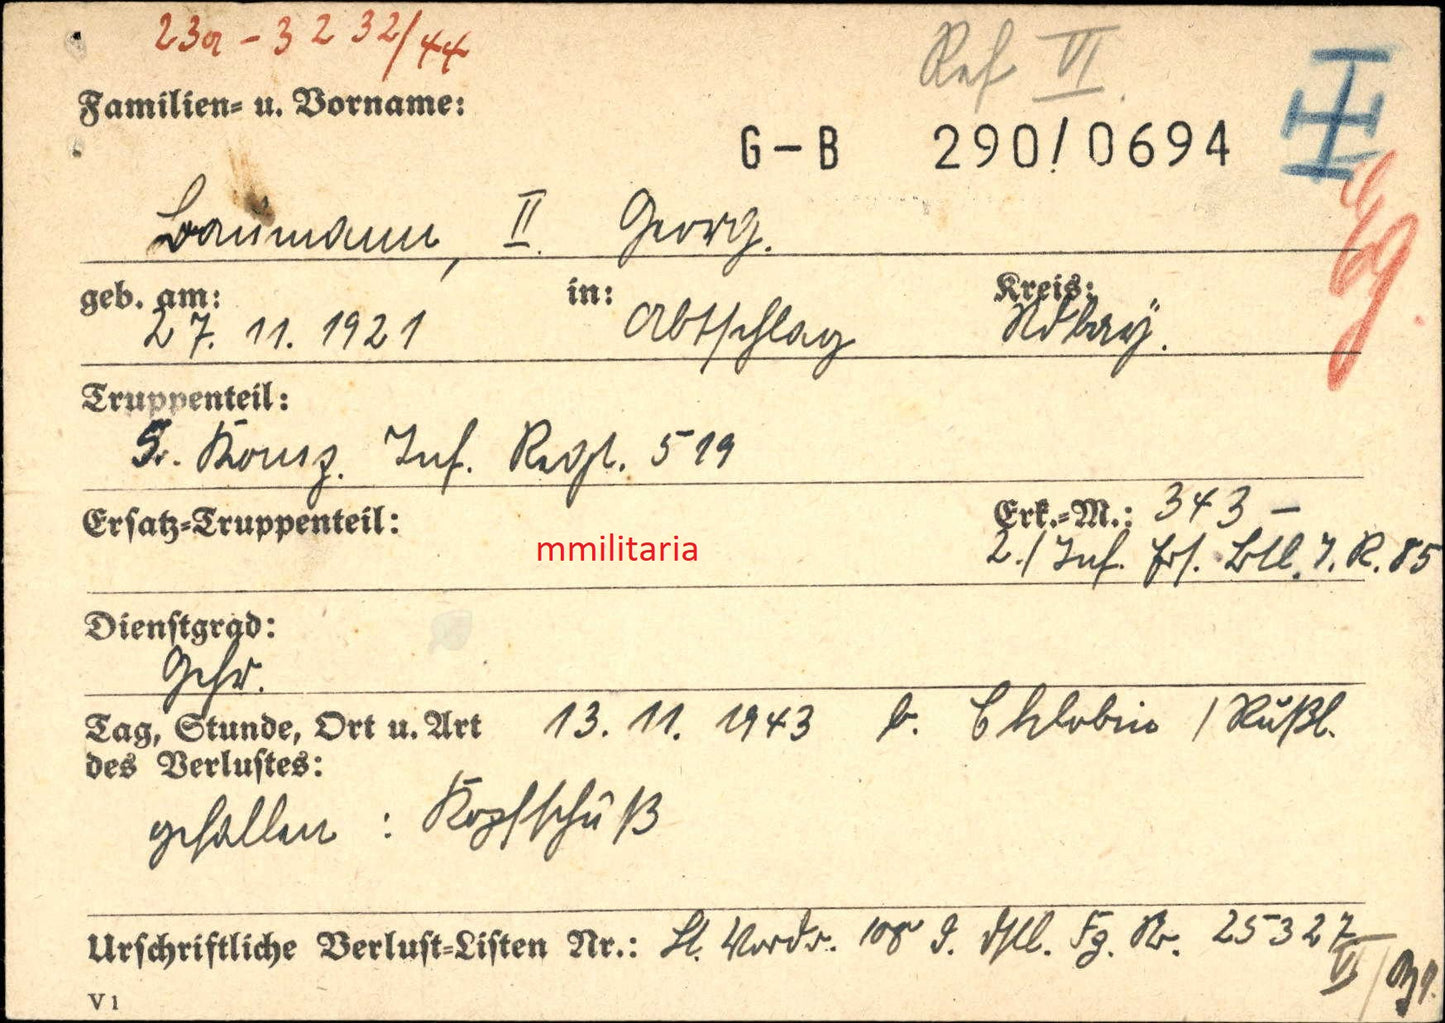 23a - 3232/44
Ref VI.
Familien- u. Vorname:
G-B 290/0694
Baumann, II. Georg.
geb. am: in: Kreis:
27. 11. 1921 Abtschlag Ndbay.
Truppenteil:
5. Komp. Inf. Regt. 519
Ersatz-Truppenteil: Erk.-M.: 343 -
mmilitaria
2./Inf. Ers. Btl. I.R. 85
Dienstgrad:
Gefr.
Tag, Stunde, Ort u. Art 13. 11. 1943 b. Chlobin /Rußl.
des Verlustes:
gefallen : Kopfschuß
Urschriftliche Verlust-Listen Nr.: Fg. Nr. 25327
VI
V 1